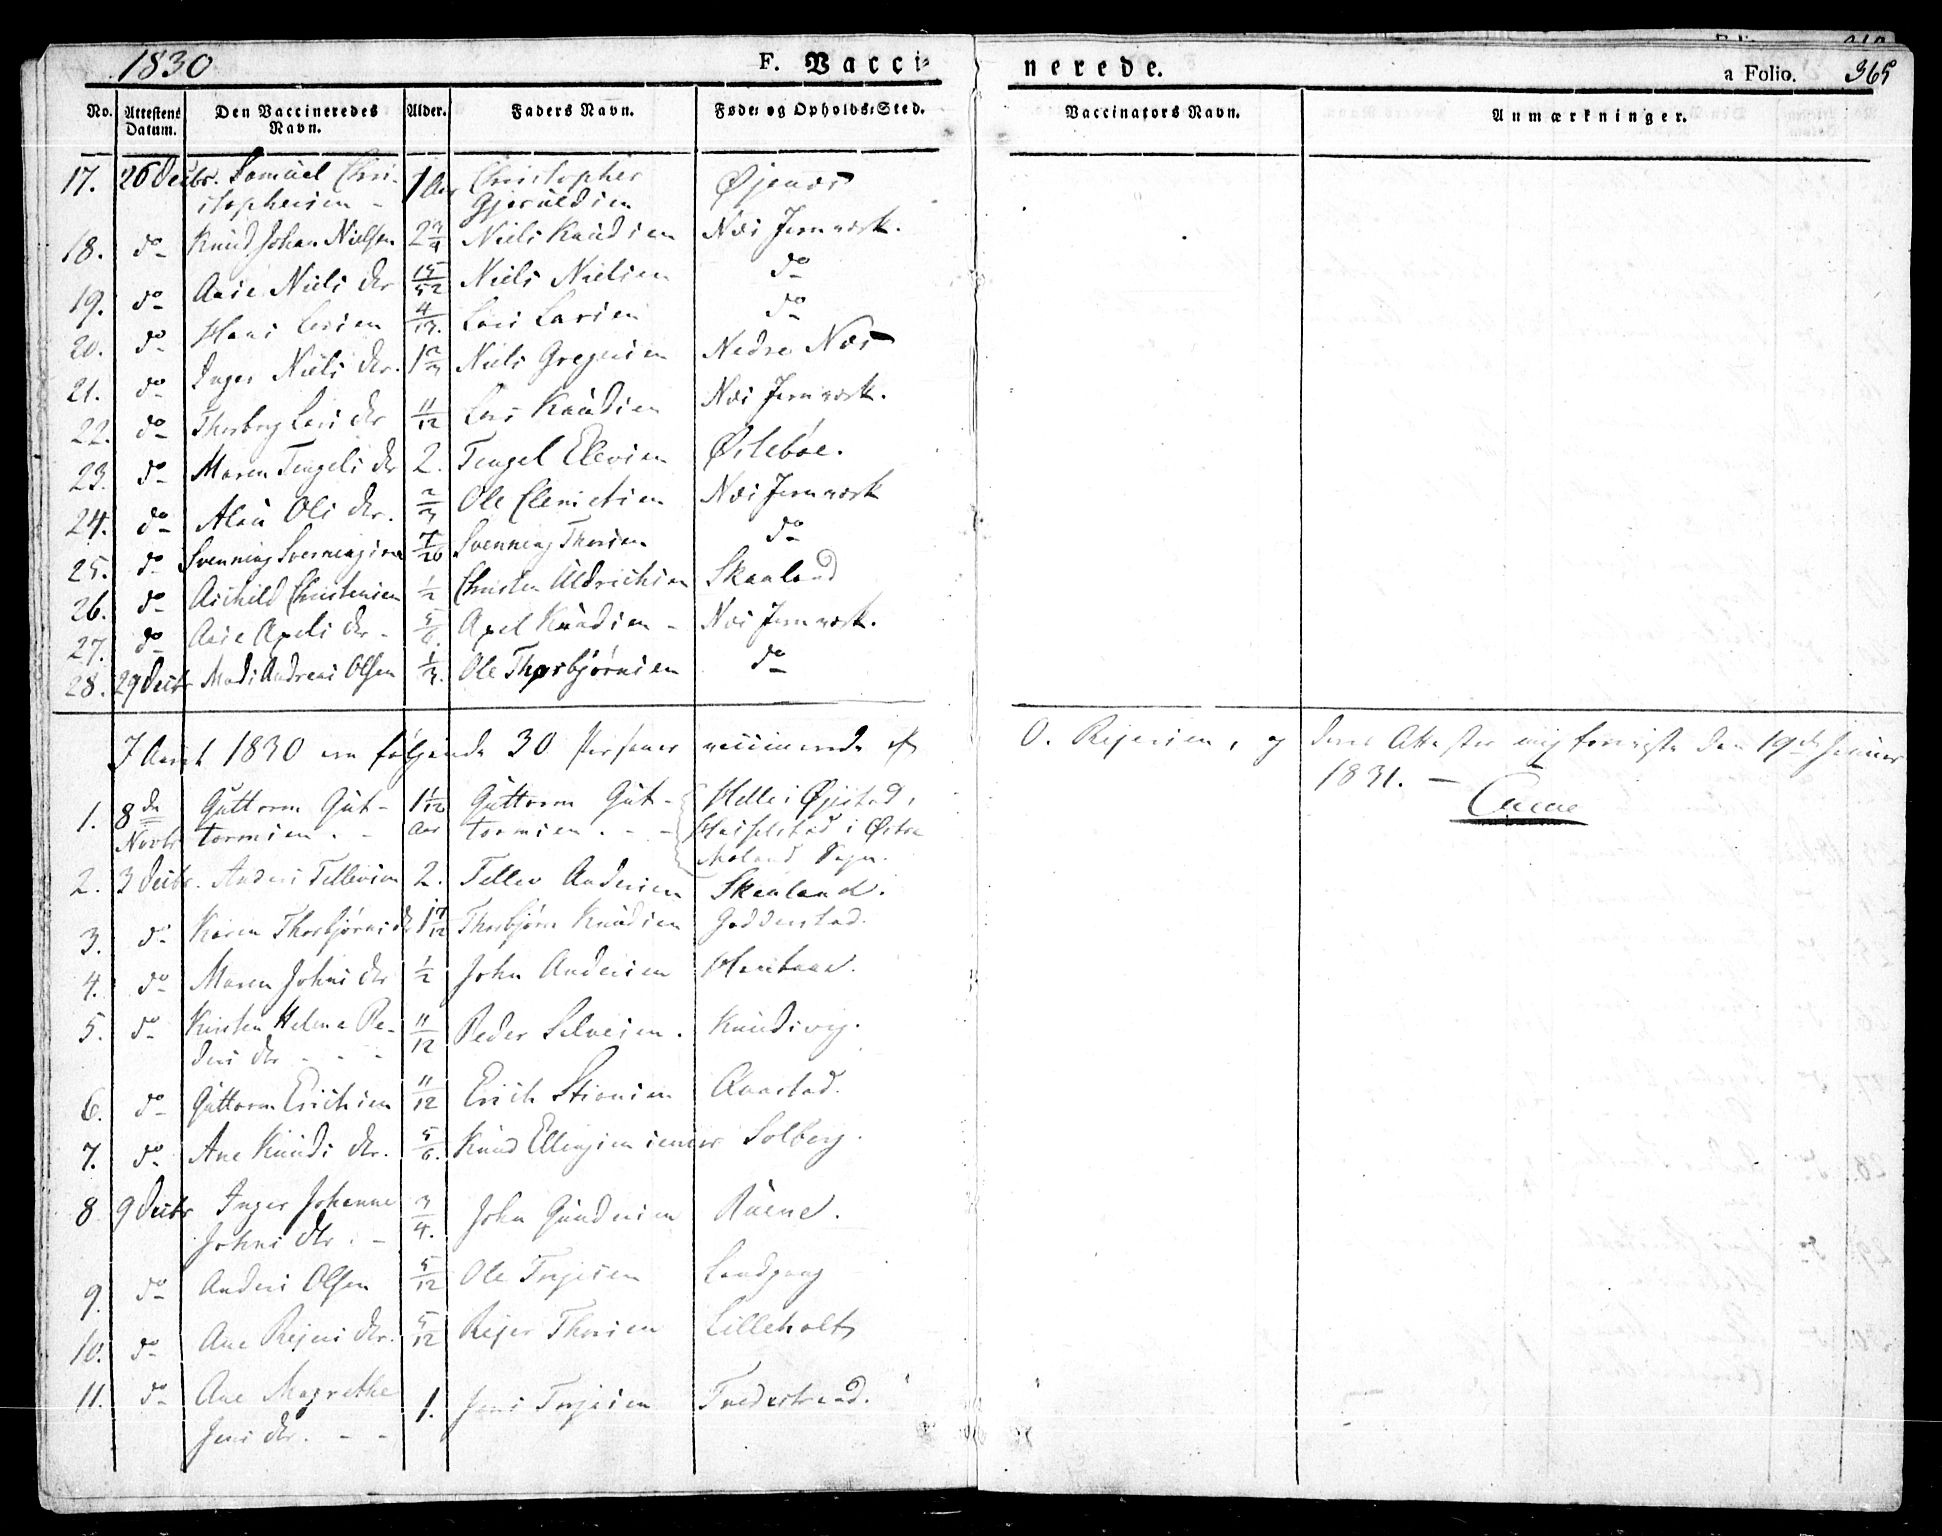 1830 F. Vacci=
nerede. a Folio. 365
No. Attestens Datum. Den Vaccineredes Navn. Alder. Faders Navn. Føde= og Opholds=Sted. Vaccinators Navn. Anmærkninger.
17. 26 Decbr. Samuel Chri- 1 Aar Christopher Øjenæs
stophersen - Gjeruldsen
18. do Knud Johan Nielsen 2 3/4 Niels Knudsen Næs Jernværk.
19. do Aase Niels dtr 15/52 Niels Nielsen do
20. do Hans Larsen 4/13. Lars Larsen do
21. do Inger Niels dtr. 1 2/3 Niels Gregersen Nedre Næs
22. do Thorborg Lars dtr 11/12 Lars Knudsen Næs Jernværk.
23. do Maren Tengels dtr 2. Tengel Ellevsen Østebøe.
24. do Ols dtr. 2/3 Ole Clemetsen Næs Jernværk
25. do Svenning Svenningsen 7/20 Svenning Thorsen do
26. do Aschild Christensen 1/2 Christen Uldrichsen Skaaland
27. do Aase Axels dtr - 5/6. Axel Knudsen - Næs Jernværk.
28. 29 Decbr Mads Andreas Olsen 1/3. Ole Thorbjørnsen do
I Aaret 1830 ere følgende 30 Personer vaccinerede af O. Rejersen, og deres Attester mig foreviste den 19de Januar
1831. -
1. 8de Guttorm Gut- 1 1/12 Guttorm Gut- Helle i Øjestad,
Novbr tormsen. - Aar tormsen. - - i Østre
Moland Sogn.
2. 3 Decbr. Anders Tellevsen 2. Tellev Andersen Skaaland.
3. do Karen Thorbjørns dtr 1 7/12 Thorbjørn Knudsen Godderstad.
4. do Maren Johns dtr 1/2 John Andersen
5. do Kirsten Helene Pe- 11/12 Peder Salvesen. Knudsvig.
ders dtr - - -
6. do Guttorm Erichsen 11/12 Erich Stiansen Qvastad.
7. do Ane Knuds dtr. 5/6. Knud Ellingsen senior Solberg.
8 9 Decbr Inger Johanne 3/4. John Gundersen
Johns dtr. -
9. do Anders Olsen 5/12 Ole Terjesen Landgang
10. do Ane Rejers dtr. 5/12 Rejer Thorsen Lilleholt
11. do Ane Magrethe 1. Jens Terjesen Tvedestrand.
Jens dtr. - -